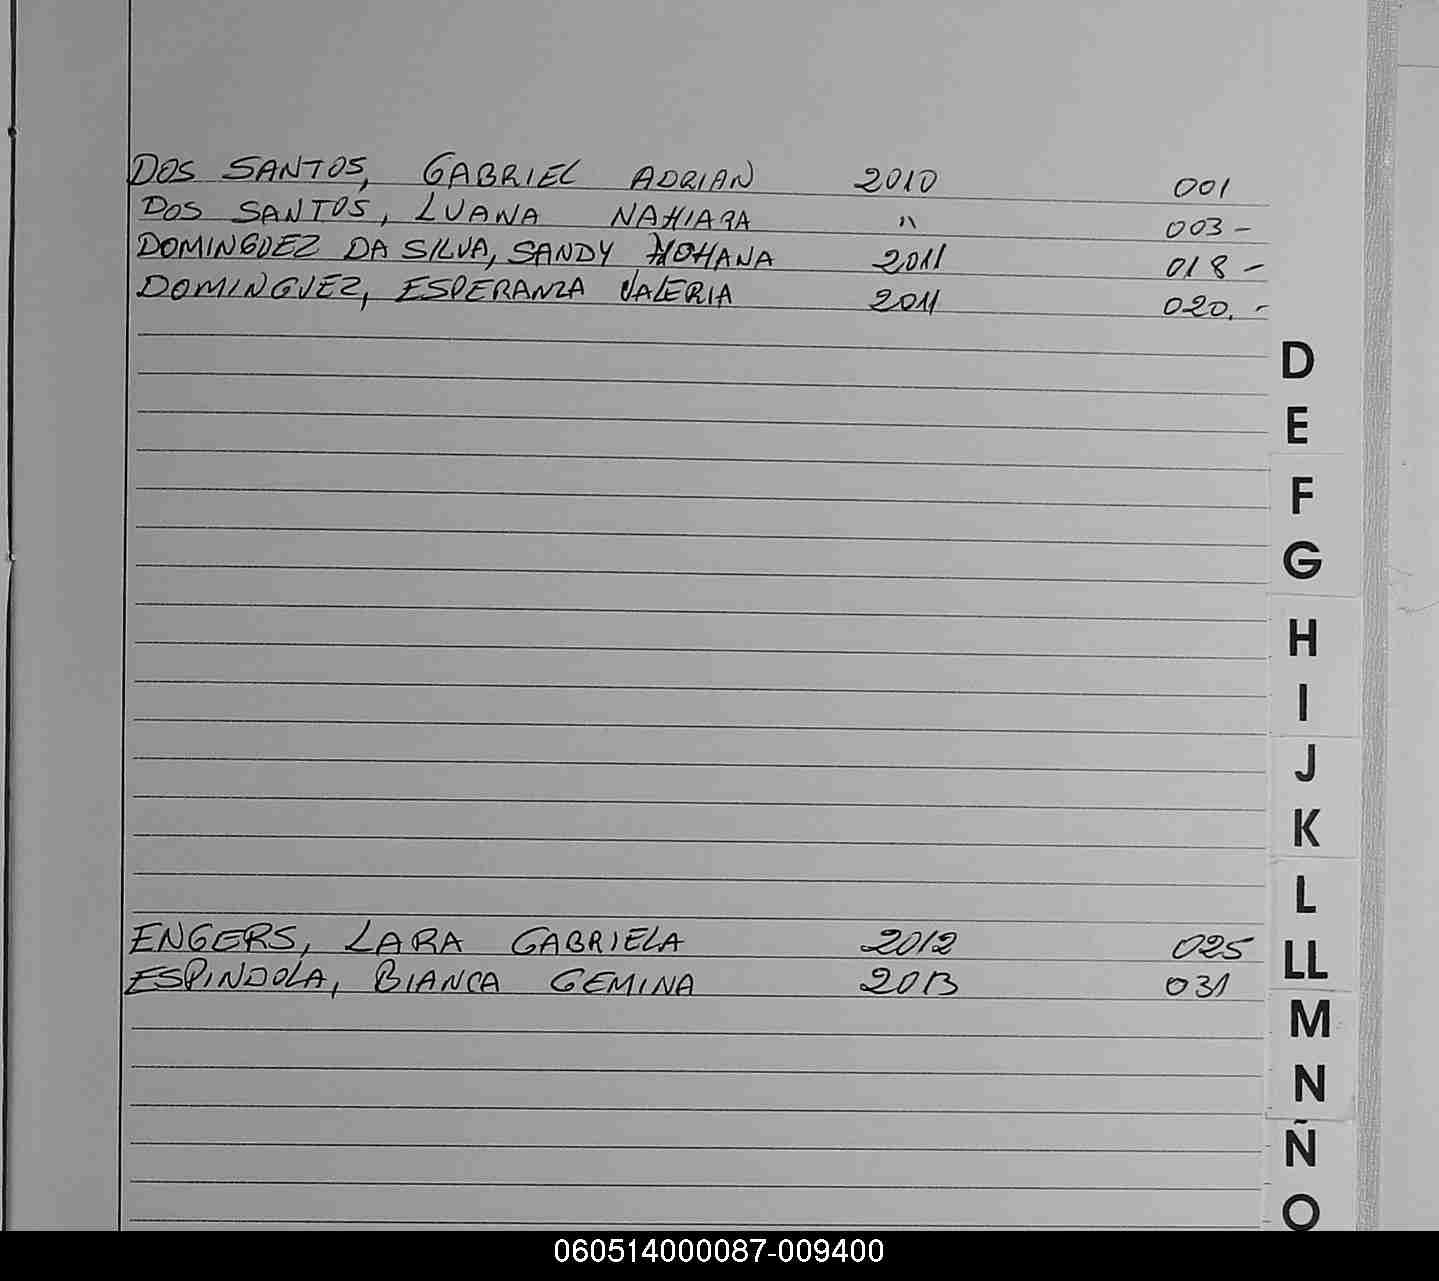 DOS SANTOS, GABRIEL ADRIAN 2010 001
DOS SANTOS, LUANA NAHIARA " 003-
DOMINGUEZ DA SILVA, SANDY 2011 018-
DOMINGUEZ, ESPERANZA VALERIA 2011 020.-
D
E
F
G
H
I
J
K
L
ENGERS, LARA GABRIELA 2012 025
LL
ESPINDOLA, BIANCA GEMINA 2013 031
M
N
Ñ
O
060514000087-009400